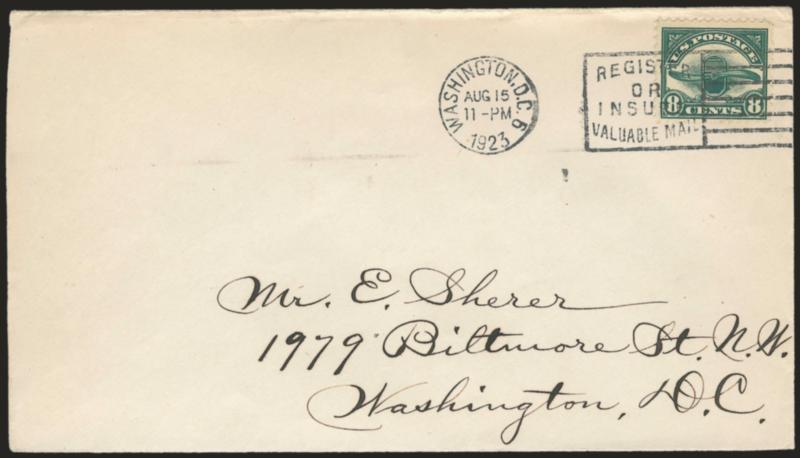 WASHINGTON, D.C. 5
AUG 15
11-PM
1923
REGISTER
OR
INSURE
VALUABLE MAIL
U.S. POSTAGE
8 CENTS 8
Mr. E. Sherer
1979 Biltmore St. N.W.
Washington, D.C.